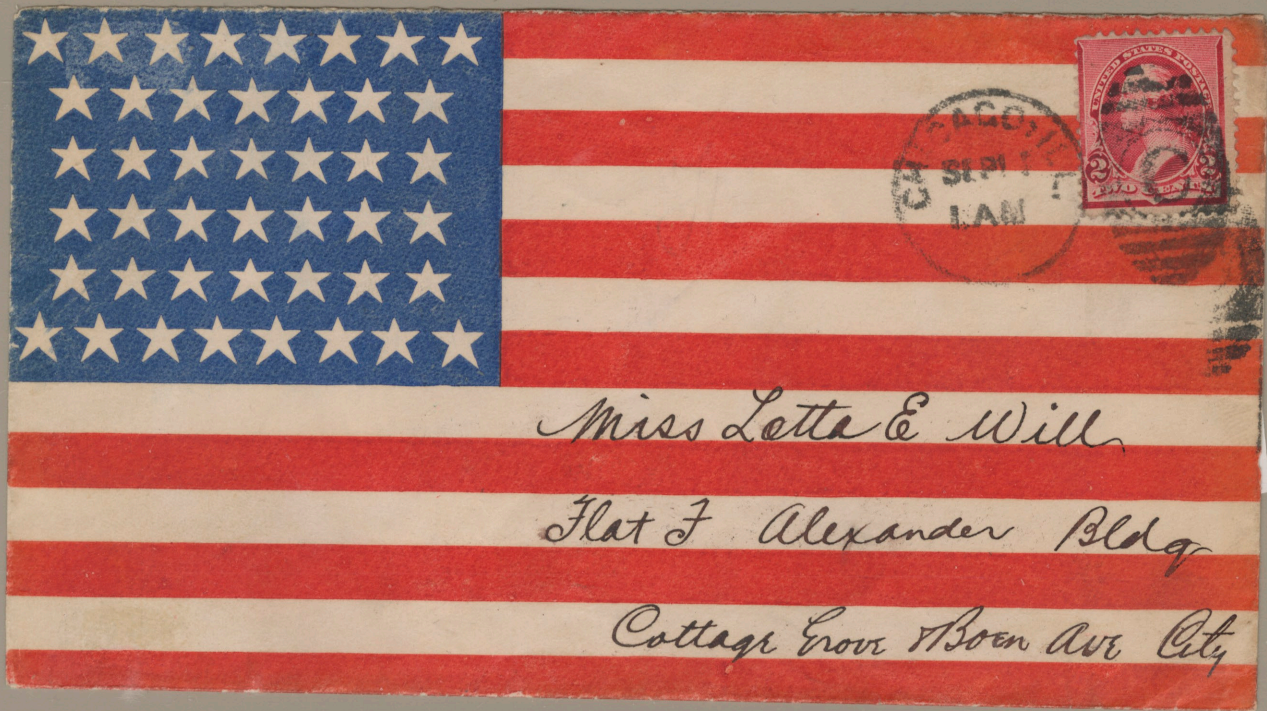 UNITED STATES POSTAGE
2 2
TWO CENTS
CHICAGO, ILL.
SEP 1
1 AM
Miss Letta E Will
Flat F Alexander Bldg
Cottage Grove & Boen Ave City